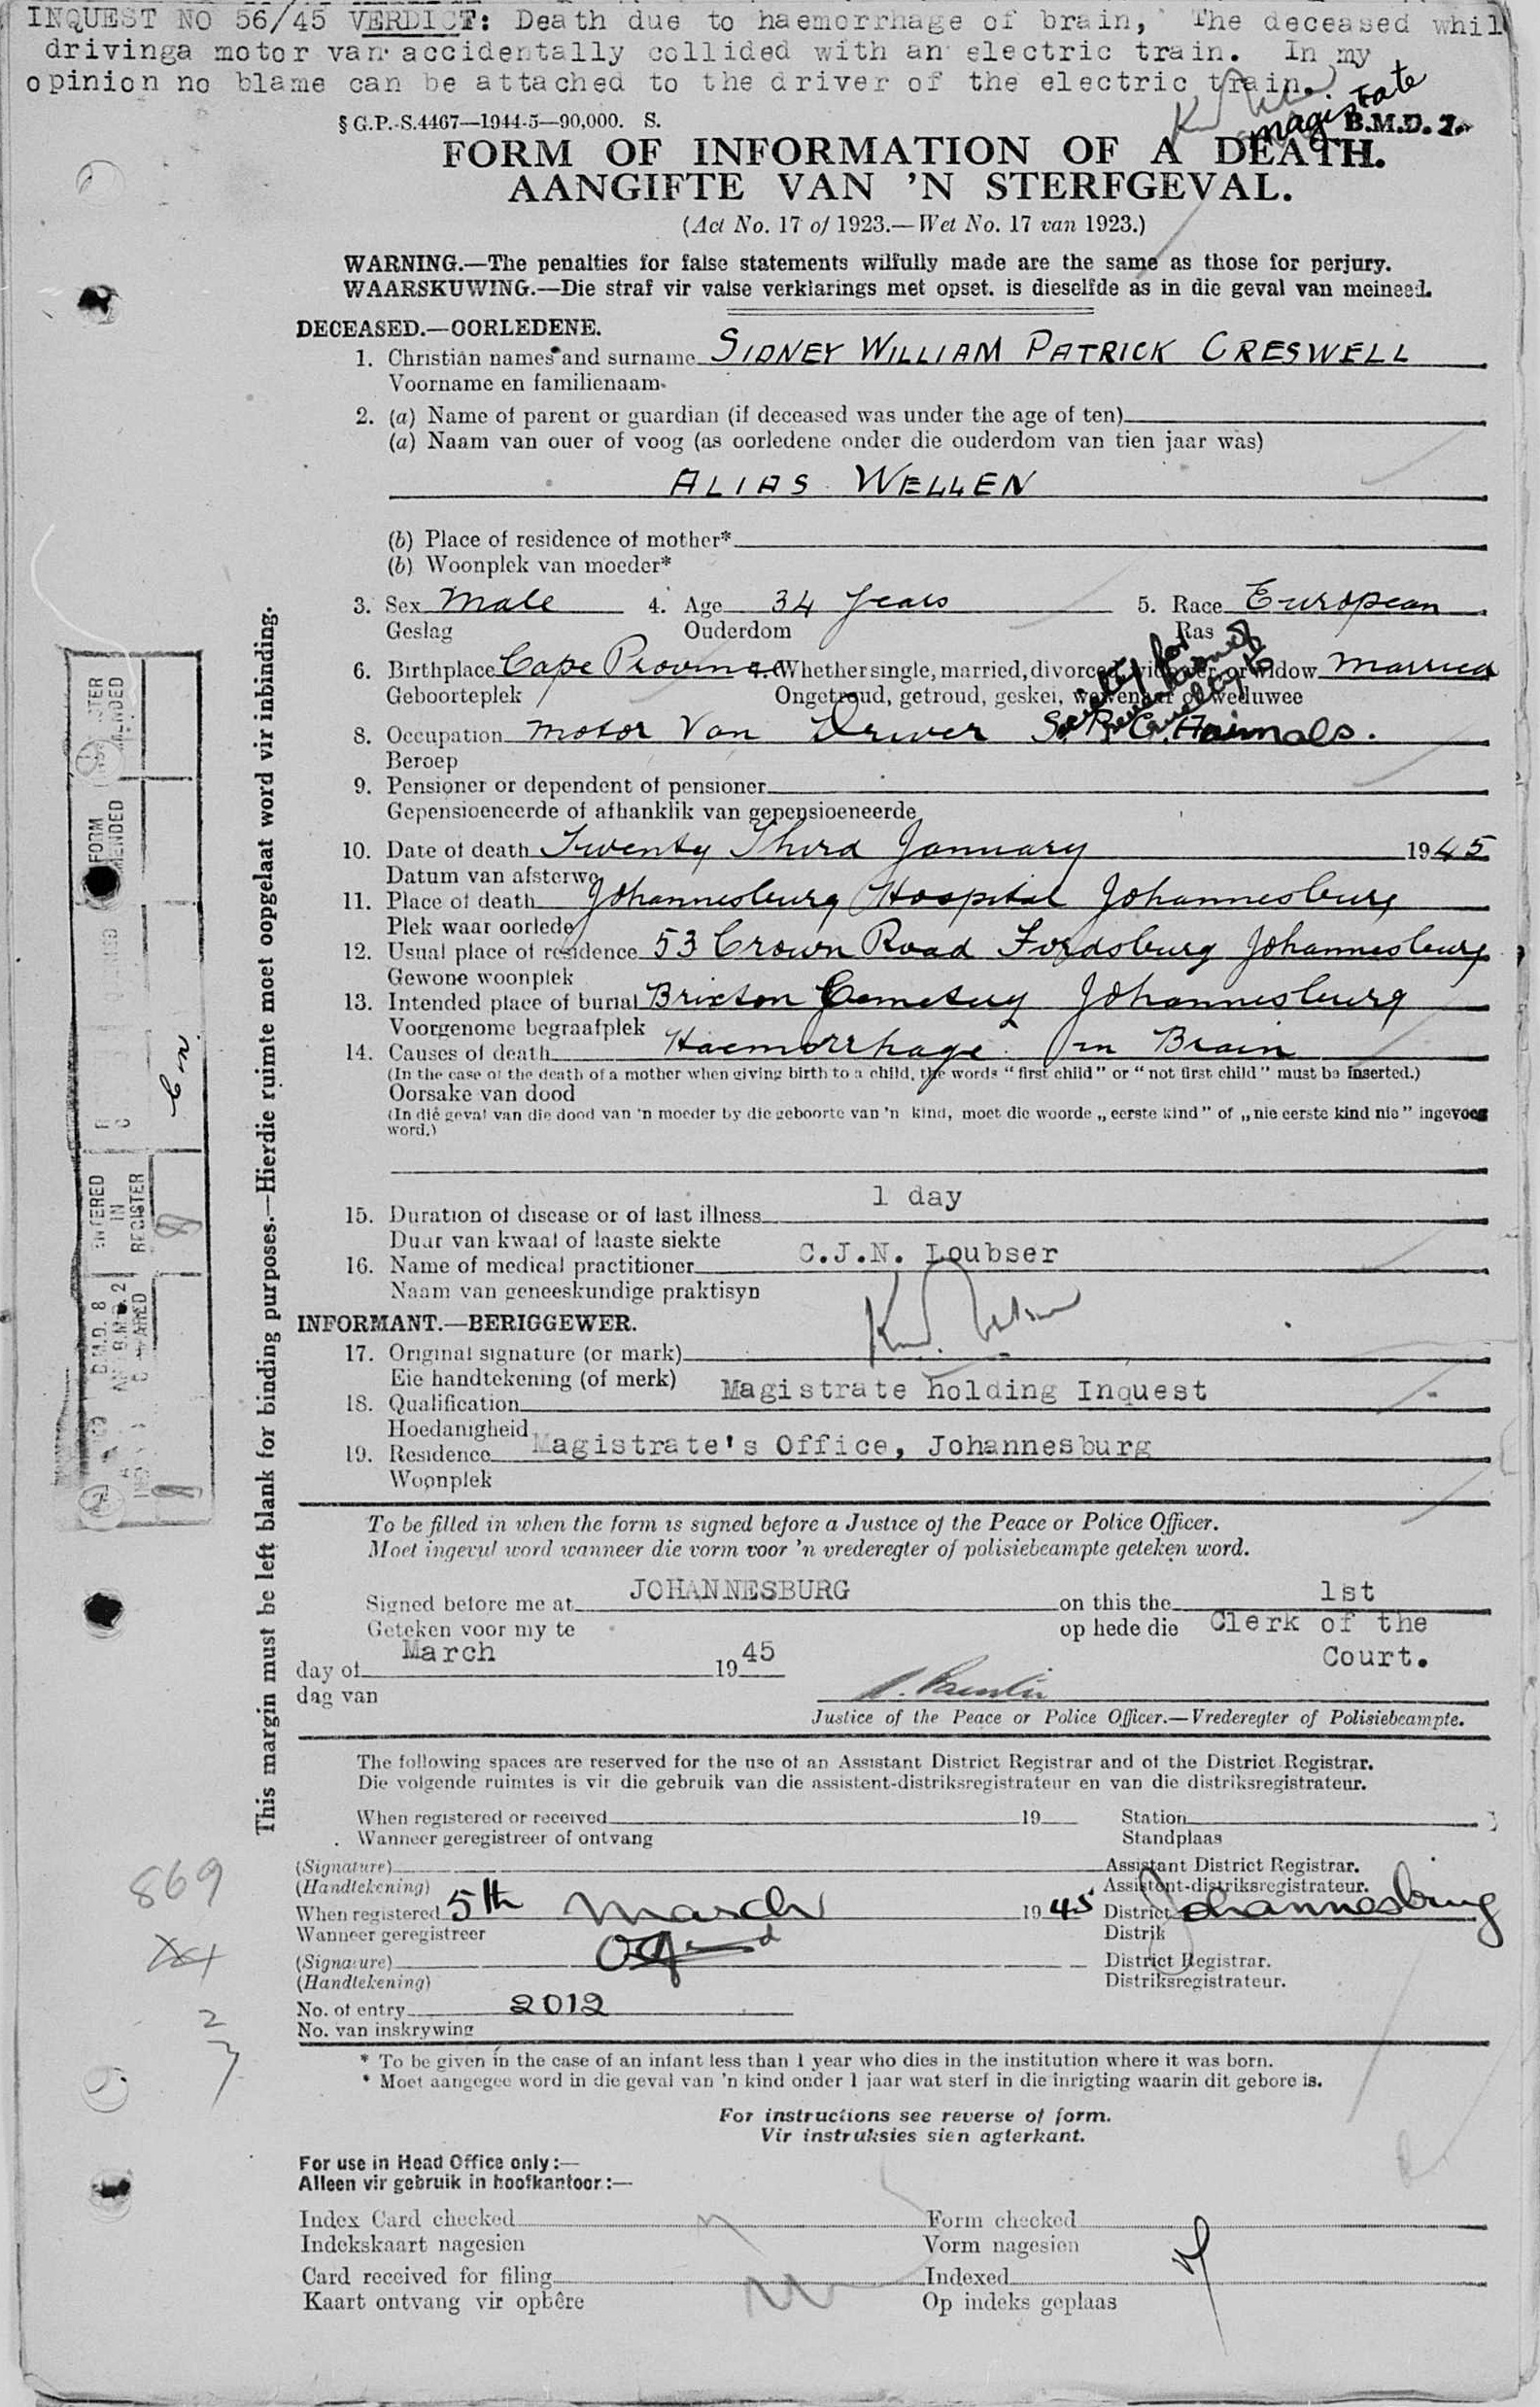 INQUEST NO 56/45 VERDICT: Death due to haemorrhage of brain, The deceased whil
drivinga motor van accidentally collided with an electric train. In my
opinion no blame can be attached to the driver of the electric train.
Magistrate
§ G.P.-S.4467—1944-5—90,000. S.
B.M.D. 7.
FORM OF INFORMATION OF A DEATH.
AANGIFTE VAN 'N STERFGEVAL.
(Act No. 17 of 1923.—Wet No. 17 van 1923.)
WARNING.—The penalties for false statements wilfully made are the same as those for perjury.
WAARSKUWING.—Die straf vir valse verklarings met opset. is dieselfde as in die geval van meineed.
DECEASED.—OORLEDENE.
1. Christian names and surname SIDNEY WILLIAM PATRICK CRESWELL
Voorname en familienaam
2. (a) Name of parent or guardian (if deceased was under the age of ten)
(a) Naam van ouer of voog (as oorledene onder die ouderdom van tien jaar was)
ALIAS WELLEN
(b) Place of residence of mother*
(b) Woonplek van moeder*
3. Sex Male 4. Age 34 years 5. Race European
Geslag Ouderdom Ras
6. Birthplace Cape Province 7. Whether single, married, divorced, widower, or widow Married
Geboorteplek Ongetroud, getroud, geskei, wewenaar of weduwee
Society for
Prevention
Cruelty to
8. Occupation Motor Van Driver S.P.C. Animals.
Beroep
9. Pensioner or dependent of pensioner
Gepensioeneerde of afhanklik van gepensioeneerde
10. Date of death Twenty Third January 1945
Datum van afsterwe
11. Place of death Johannesburg Hospital Johannesburg
Plek waar oorlede
12. Usual place of residence 53 Crown Road Fordsburg Johannesburg
Gewone woonplek
13. Intended place of burial Brixton Cemetery Johannesburg
Voorgenome begraafplek
14. Causes of death Haemorrhage in Brain
(In the case of the death of a mother when giving birth to a child, the words "first child" or "not first child" must be inserted.)
Oorsake van dood
(In dié geval van die dood van 'n moeder by die geboorte van 'n kind, moet die woorde „eerste kind" of „nie eerste kind nie" ingevoeg
word.)
15. Duration of disease or of last illness 1 day
Duur van kwaal of laaste siekte
16. Name of medical practitioner C.J.N. Loubser
Naam van geneeskundige praktisyn
INFORMANT.—BERIGGEWER.
17. Original signature (or mark)
Eie handtekening (of merk)
18. Qualification Magistrate holding Inquest
Hoedanigheid
19. Residence Magistrate's Office, Johannesburg
Woonplek
To be filled in when the form is signed before a Justice of the Peace or Police Officer.
Moet ingevul word wanneer die vorm voor 'n vrederegter of polisiebeampte geteken word.
Signed before me at JOHANNESBURG on this the 1st
Geteken voor my te op hede die Clerk of the
day of March 1945 Court.
dag van
Justice of the Peace or Police Officer.—Vrederegter of Polisiebeampte.
The following spaces are reserved for the use of an Assistant District Registrar and of the District Registrar.
Die volgende ruimtes is vir die gebruik van die assistent-distriksregistrateur en van die distriksregistrateur.
When registered or received 19 Station
Wanneer geregistreer of ontvang Standplaas
(Signature) Assistant District Registrar.
(Handtekening) Assistent-distriksregistrateur.
When registered 5th March 1945 District Johannesburg
Wanneer geregistreer Distrik
(Signature) District Registrar.
(Handtekening) Distriksregistrateur.
No. of entry 2012
No. van inskrywing
* To be given in the case of an infant less than 1 year who dies in the institution where it was born.
* Moet aangegee word in die geval van 'n kind onder 1 jaar wat sterf in die inrigting waarin dit gebore is.
For instructions see reverse of form.
Vir instruksies sien agterkant.
For use in Head Office only:—
Alleen vir gebruik in hoofkantoor:—
Index Card checked Form checked
Indekskaart nagesien Vorm nagesien
Card received for filing Indexed
Kaart ontvang vir opbêre Op indeks geplaas
This margin must be left blank for binding purposes.—Hierdie ruimte moet oopgelaat word vir inbinding.
ENTERED
IN
REGISTER
FORM
869
2
7